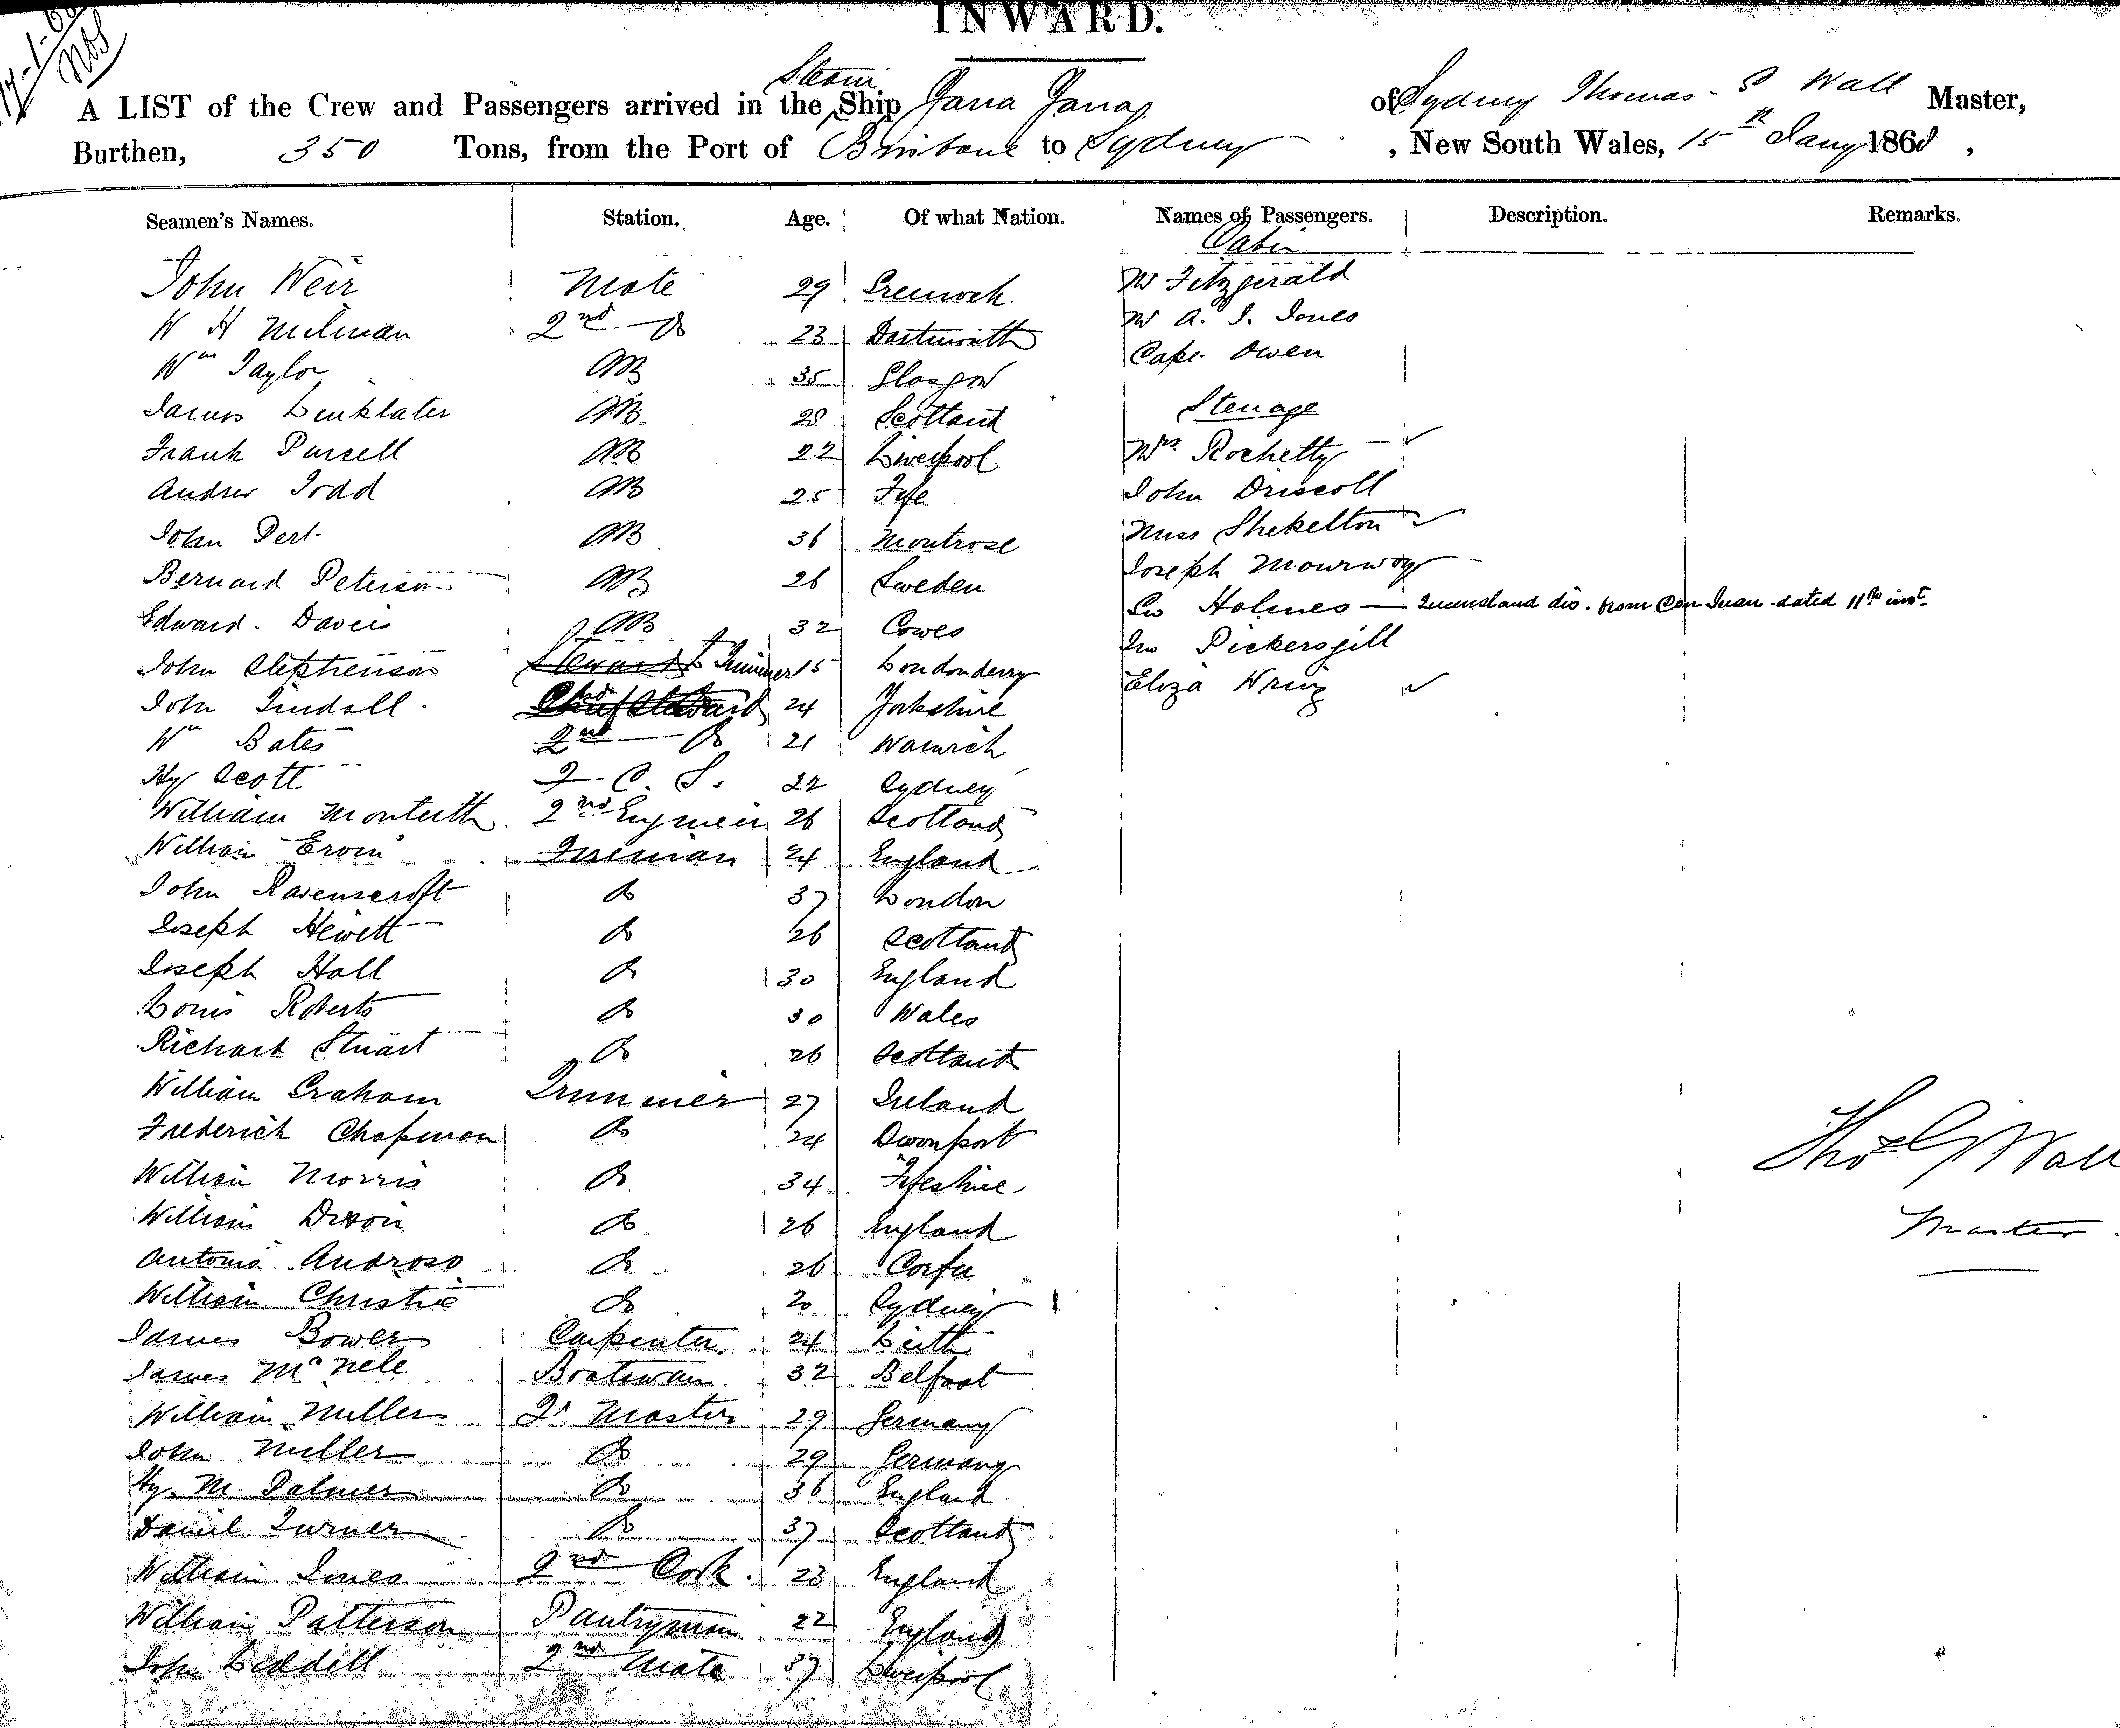 INWARD.
17-1-68
A LIST of the Crew and Passengers arrived in the Steam Ship Yarra Yarra of Sydney Thomas S Wall Master,
Burthen, 350 Tons, from the Port of Brisbane to Sydney, New South Wales, 15th Jany 1868,
Seamen's Names. Station. Age. Of what Nation. Names of Passengers. Description. Remarks.
Cabin
John Weir Mate 29 Greenock Mr Fitzgerald
W H Milman 2nd Do 23 Dartmouth Mr A. J. Jones
Wm Taylor AB 35 Glasgow Capt Owen
James Linklater AB 28 Scotland Steerage
Frank Pursell AB 22 Liverpool Mrs Rochetty
Andrew Todd AB 25 Fife John Driscoll
John Pert AB 36 Montrose Miss Shekelton
Bernard Peterson AB 26 Sweden Joseph
Edward Davies AB 32 Cowes Geo Holmes — Queensland dis. from dated 11th inst
John Stephenson Trimmer 15 Londonderry Jno Pickersgill
John Tindall 24 Yorkshire Eliza
Wm Bates 2nd Do 21 Warwick
Hy Scott F. C. S. 22 Sydney
William Monteith 2nd Engineer 26 Scotland
William Ervin Fireman 24 England
John Ravenscroft Do 37 London
Joseph Hewett Do 26 Scotland
Joseph Hall Do 30 England
Louis Roberts Do 30 Wales
Richard Stuart Do 26 Scotland
William Graham Trimmer 27 Ireland
Frederick Chapman Do 24 Devonport
William Morris Do 34 Fifeshire
William Dixon Do 26 England
Antonio Androso Do 26 Corfu
William Christie Do 20 Sydney
James Bower Carpenter 24 Leith
James McNele Boatswain 32 Belfast
William Miller Qr Master 29 Germany
John Miller Do 29 Germany
Hy. M. Palmer Do 36 England
Daniel Turner Do 37 Scotland
William Jones 2nd Cook 23 England
William Patterson Pantryman 22 England
John Liddell 2nd Mate 37 Liverpool
Thos S Wall
Master